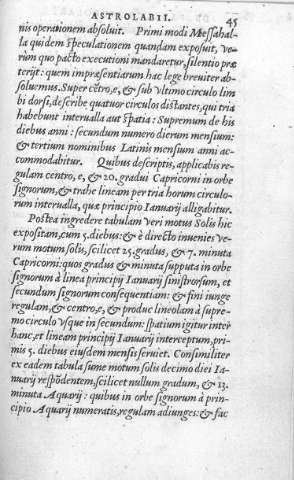 ASTROLABII. 45
nis operationem absoluit. Primi modi Messahal-
la quidem speculationem quandam exposuit, ve-
rum quo pacto executioni mandaretur, silentio præ
terijt: quem impræsentiarum hac lege breuiter ab-
soluemus. Super cẽtro, e, & sub vltimo circulo lim
bi dorsi, describe quatuor circulos distantes, qui tria
habebunt interualla aut spatia: Supremum de his
diebus anni: secundum numero dierum mensium:
& tertium nominibus Latinis mensium anni ac-
commodabitur. Quibus descriptis, applicabis re-
gulam centro, e, & 20. gradui Capricorni in orbe
signorum, & trahe lineam per tria horum circulo-
rum interualla, qua principio Ianuarij alligabitur.
Postea ingredere tabulam veri motus Solis hic
expositam, cum 5. diebus: & è directo inuenies ve-
rum motum solis, scilicet 25. gradus, & 7. minuta
Capricorni: quos gradus & minuta supputa in orbe
signorum à linea principij Ianuarij sinistrorsum, et
secundum signorum consequentiam: & fini iunge
regulam, & centro, e, & produc lineolam à supre-
mo circulo vsque in secundum: spatium igitur inter
hanc, et lineam principij Ianuarij interceptum, pri-
mis 5. diebus eiusdem mensis seruiet. Consimiliter
ex eadem tabula sume motum solis decimo diei Ia-
nuarij respõdentem, scilicet nullum gradum, & 13.
minuta Aquarij: quibus in orbe signorum à prin-
cipio Aquarij numeratis, regulam adiunges: & fac